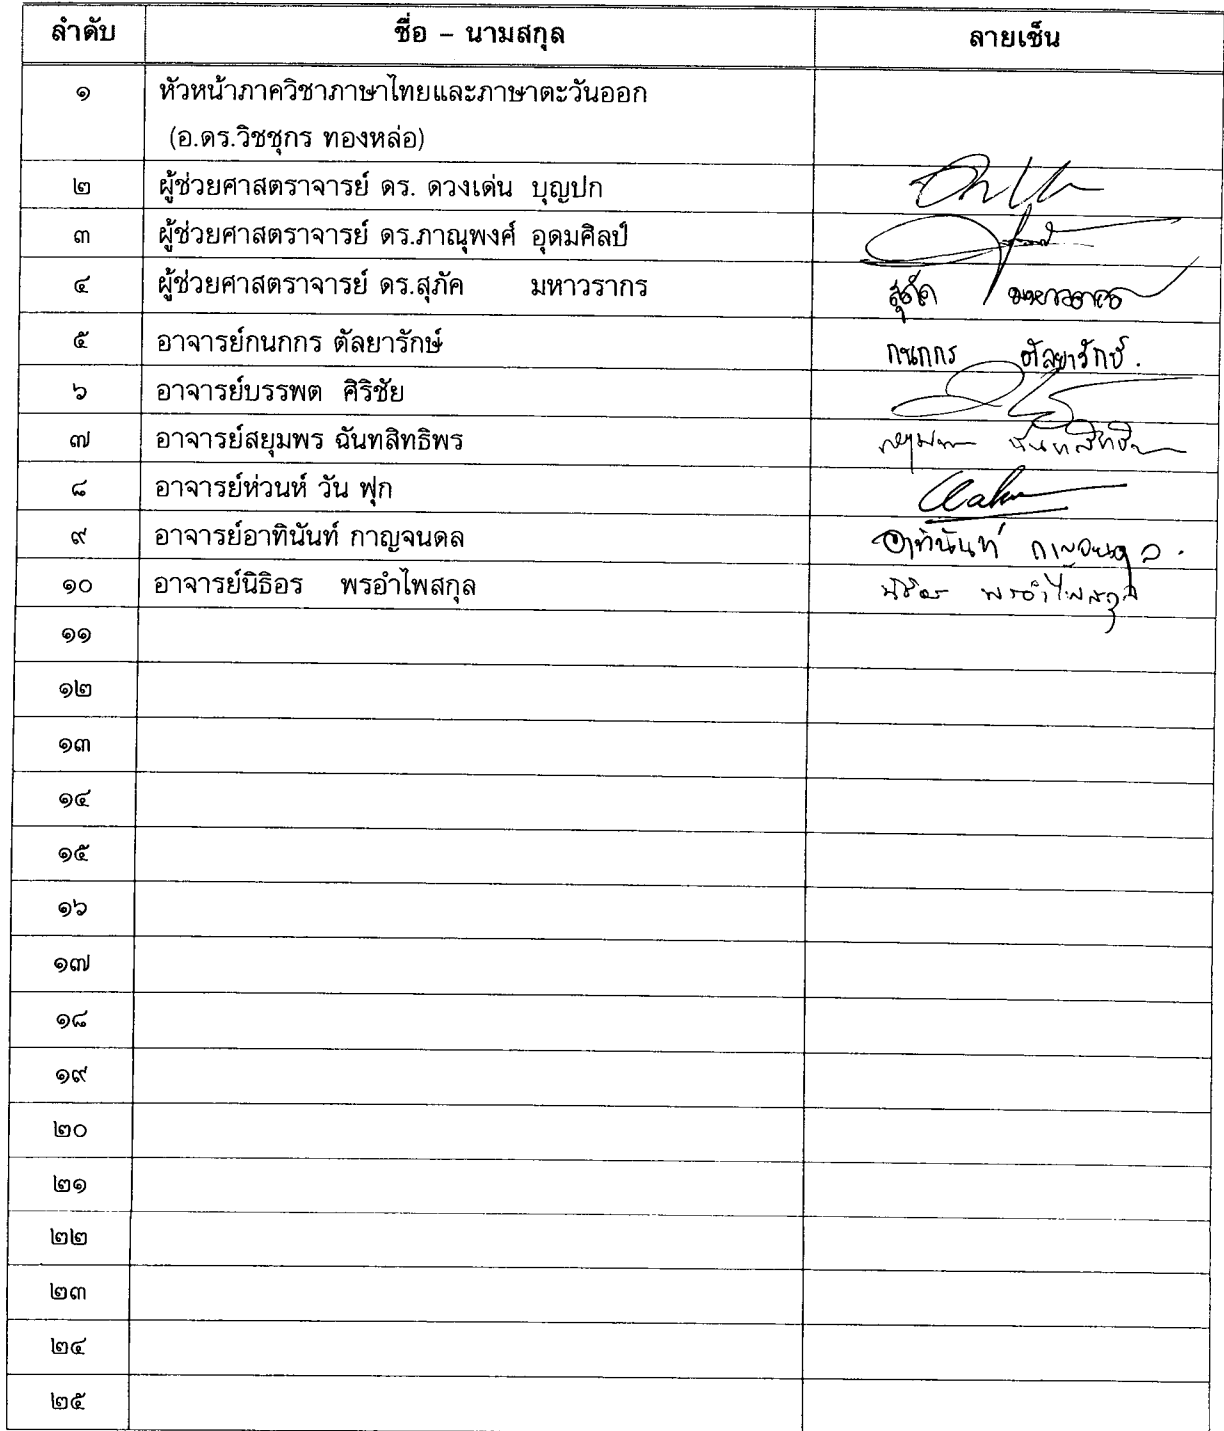 ลำดับ ชื่อ – นามสกุล ลายเซ็น
๑ หัวหน้าภาควิชาภาษาไทยและภาษาตะวันออก
(อ.ดร.วิชชุกร ทองหล่อ)
๒ ผู้ช่วยศาสตราจารย์ ดร. ดวงเด่น บุญปก
๓ ผู้ช่วยศาสตราจารย์ ดร.ภาณุพงศ์ อุดมศิลป์
๔ ผู้ช่วยศาสตราจารย์ ดร.สุภัค มหาวรากร สุภัค มหาวรากร
๕ อาจารย์กนกกร ตัลยารักษ์ กนกกร ตัลยารักษ์.
๖ อาจารย์บรรพต ศิริชัย
๗ อาจารย์สยุมพร ฉันทสิทธิพร
๘ อาจารย์ห่วนห์ วัน ฟุก
๙ อาจารย์อาทินันท์ กาญจนดล อาทินันท์ กาญจนดล.
๑๐ อาจารย์นิธิอร พรอำไพสกุล นิธิอร พรอำไพสกุล
๑๑
๑๒
๑๓
๑๔
๑๕
๑๖
๑๗
๑๘
๑๙
๒๐
๒๑
๒๒
๒๓
๒๔
๒๕